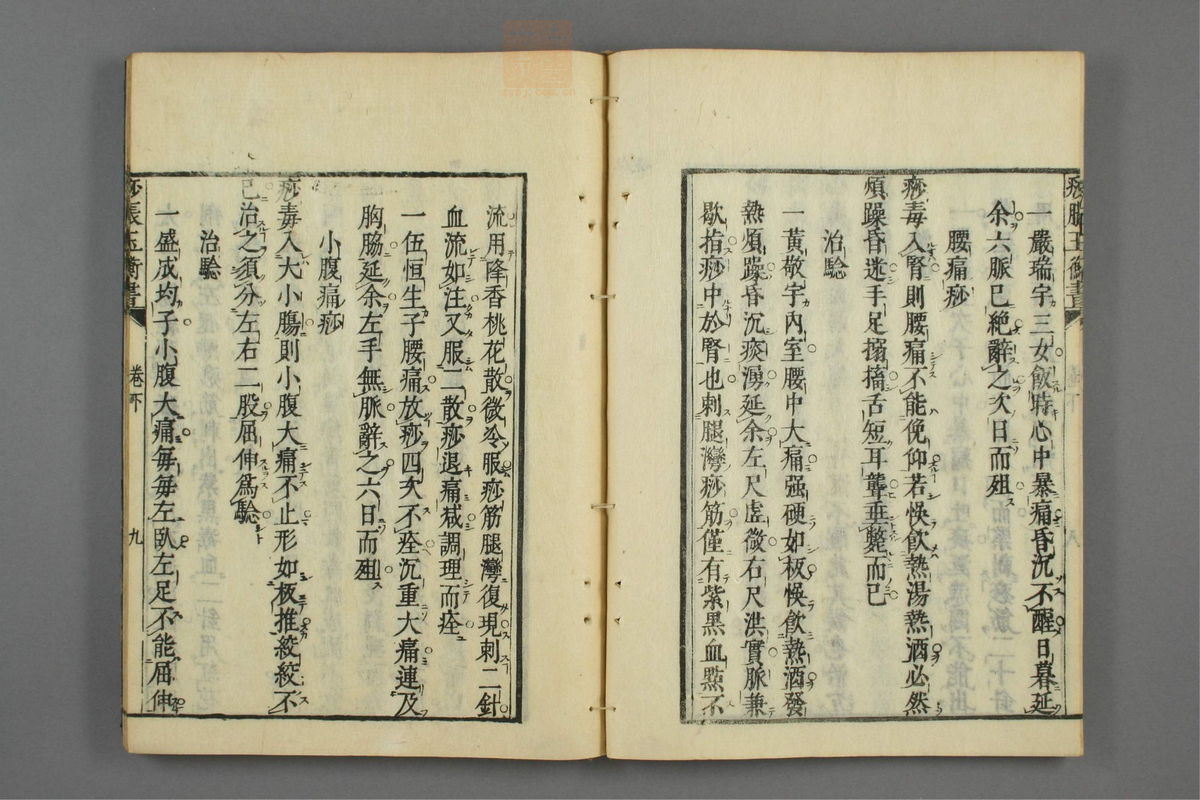 一嚴瑞宇三女飯時心中暴痛昏沉不醒日暮延
余六脈已絶辭之次日而殂
腰痛痧
痧毒入腎則腰痛不能俛仰若悞飲熱湯熱酒必然
煩躁昏迷手足搐搦舌短耳聾垂斃而已
治驗
一黃敬宇內室腰中大痛强硬如板悞飲熱酒發
熱煩躁昏沉痰湧延余左尺虛微右尺洪實脈兼
歇指痧中於腎也刺腿灣痧筋僅有紫黑血㸃不
流用降香桃花散微冷服痧筋腿灣復現刺二針
血流如注又服二散痧退痛减調理而痊
一伍恒生子腰痛放痧四次不痊沉重大痛連及
胸脇延余左手無脈辭之六日而殂
小腹痛痧
痧毒入大小腸則小腹大痛不止形如板推絞絞不
已治之須分左右二股屈伸爲驗
治驗
一盛成均子小腹大痛每每左卧左足不能屈伸
痧脹玉衡書
卷下
九